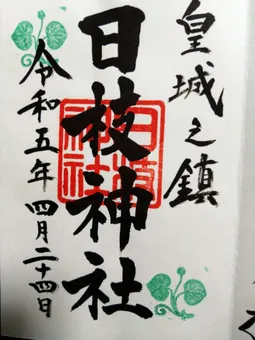 皇城之鎮
日枝神社
日枝神社
令和五年 四月二十四日